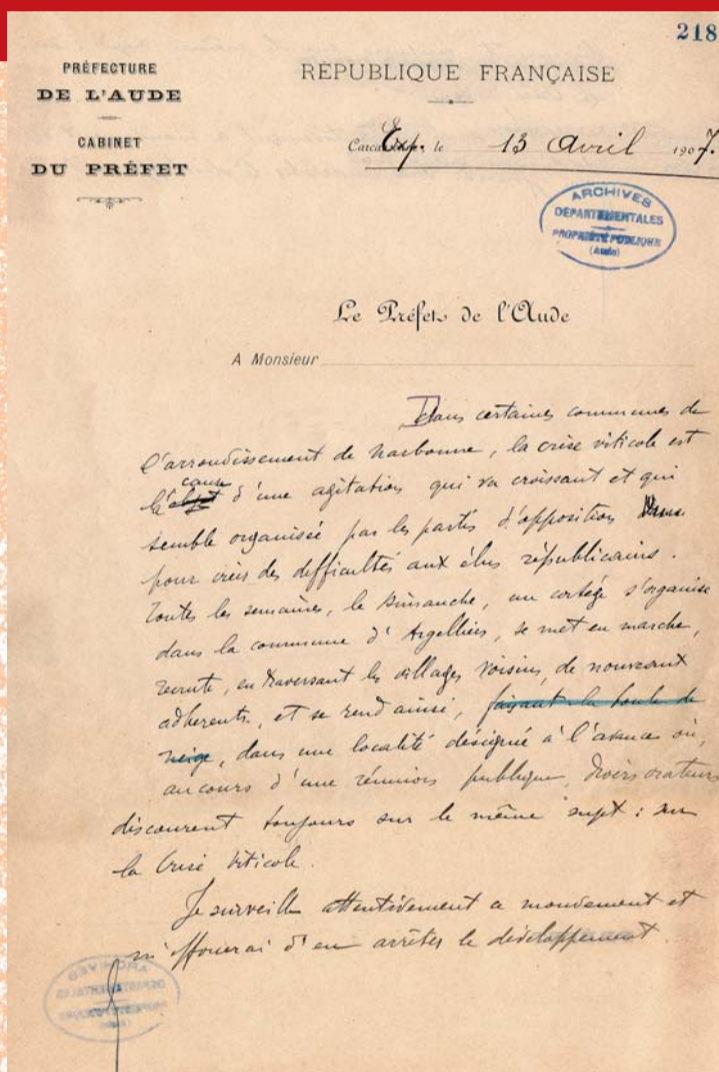 218
PRÉFECTURE
DE L'AUDE
CABINET
DU PRÉFET
RÉPUBLIQUE FRANÇAISE
Exp. le 13 Avril 1907.
ARCHIVES
DÉPARTEMENTALES
PROPRIÉTÉ PUBLIQUE
(Aude)
Le Préfet de l'Aude
A Monsieur
Dans certaines communes de
l'arrondissement de Narbonne, la crise viticole est
cause
l'objet d'une agitation qui va croissant et qui
semble organisée par les partis d'opposition
pour créer des difficultés aux élus républicains.
Toutes les semaines, le Dimanche, un cortège s'organise
dans la commune d'Argelliers, se met en marche,
recrute, en traversant les villages voisins, de nouveaux
adhérents, et se rend ainsi, faisant la boule de
neige, dans une localité désignée à l'avance où,
au cours d'une réunion publique, divers orateurs
discourent toujours sur le même sujet : sur
la Crise Viticole.
Je surveille attentivement ce mouvement et
m'efforcerai d'en arrêter le développement.
ARCHIVES
DÉPARTEMENTALES
PROPRIÉTÉ PUBLIQUE
(Aude)